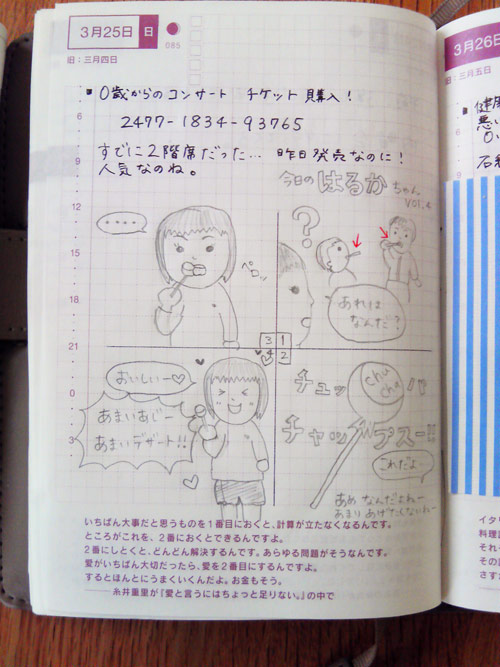 3月25日 日
085
旧：三月四日
■ 0歳からのコンサート チケット購入！
2477-1834-93765
すでに2階席だった… 昨日発売なのに！
人気なのね。
今日の はるか ちゃん
VOL.
6
9
12
15
18
21
0
3
?
あれは
なんだ？
1
2
3
4
チュッパ
チャップスー!!
chu
chu
これだよー
あめ なんだよねー
あまり あげたくないねー
‥‥
ペロッ
おいしいー♡
あまいあじー
あまいデザート!!
いちばん大事だと思うものを1番目におくと、計算が立たなくなるんです。
ところがこれを、2番におくとできるんですよ。
2番にしとくと、どんどん解決するんです。あらゆる問題がそうなんです。
愛がいちばん大切だったら、愛を2番目にするんですよ。
するとほんとにうまくいくんだよ。お金もそう。
——糸井重里が『愛と言うにはちょっと足りない。』の中で
3月26日
旧：三月五日
■ 健康
悪い
6
9
12
15
18
21
0
3
イタリ
料理
それ
その
さす